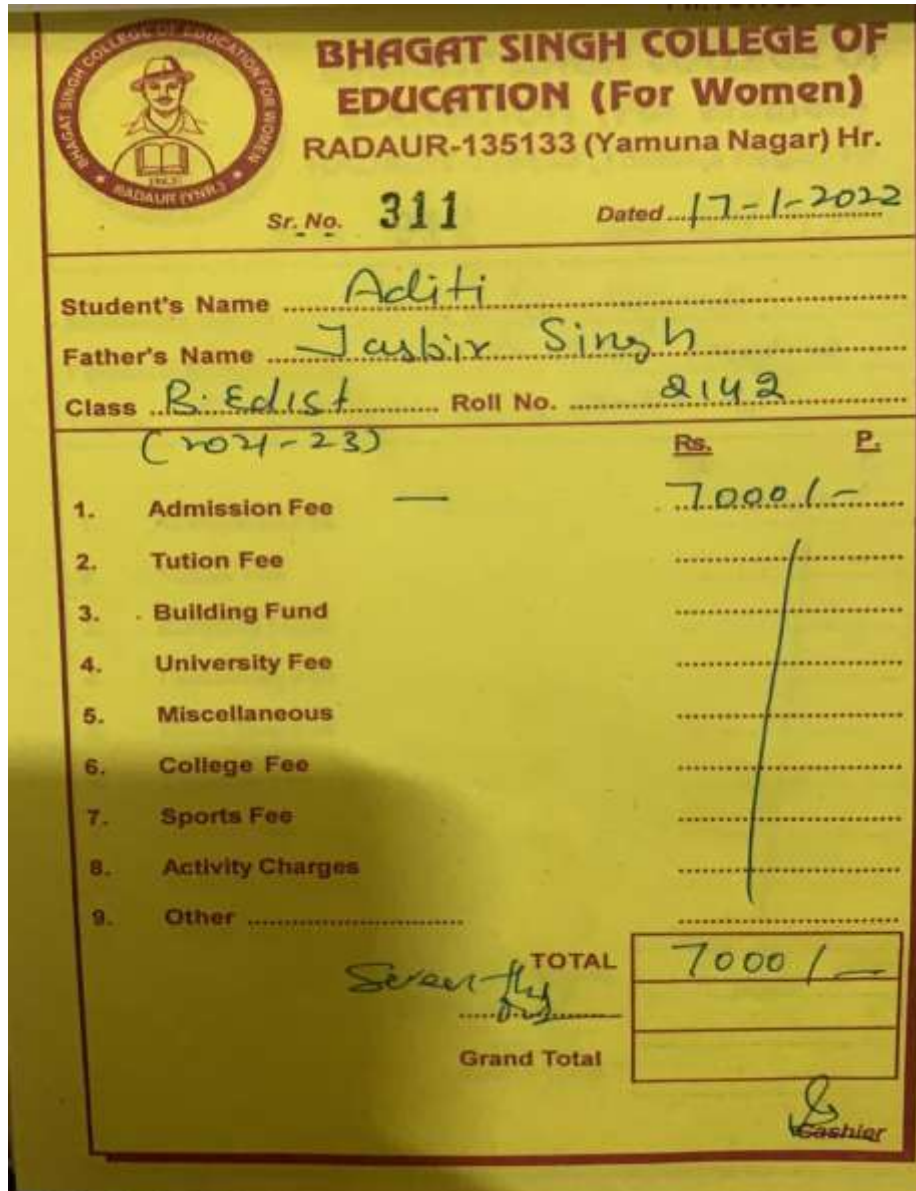 BHAGAT SINGH COLLEGE OF EDUCATION FOR WOMEN
RADAUR (YNR.)
BHAGAT SINGH COLLEGE OF
EDUCATION (For Women)
RADAUR-135133 (Yamuna Nagar) Hr.
Sr. No. 311 Dated 17-1-2022
Student's Name Aditi
Father's Name Jasbir Singh
Class B.Ed 1st Roll No. 2142
(2021-23) Rs. P.
1. Admission Fee — 7000/-
2. Tution Fee
3. Building Fund
4. University Fee
5. Miscellaneous
6. College Fee
7. Sports Fee
8. Activity Charges
9. Other
Seven TOTAL 7000/-
Grand Total
Cashier